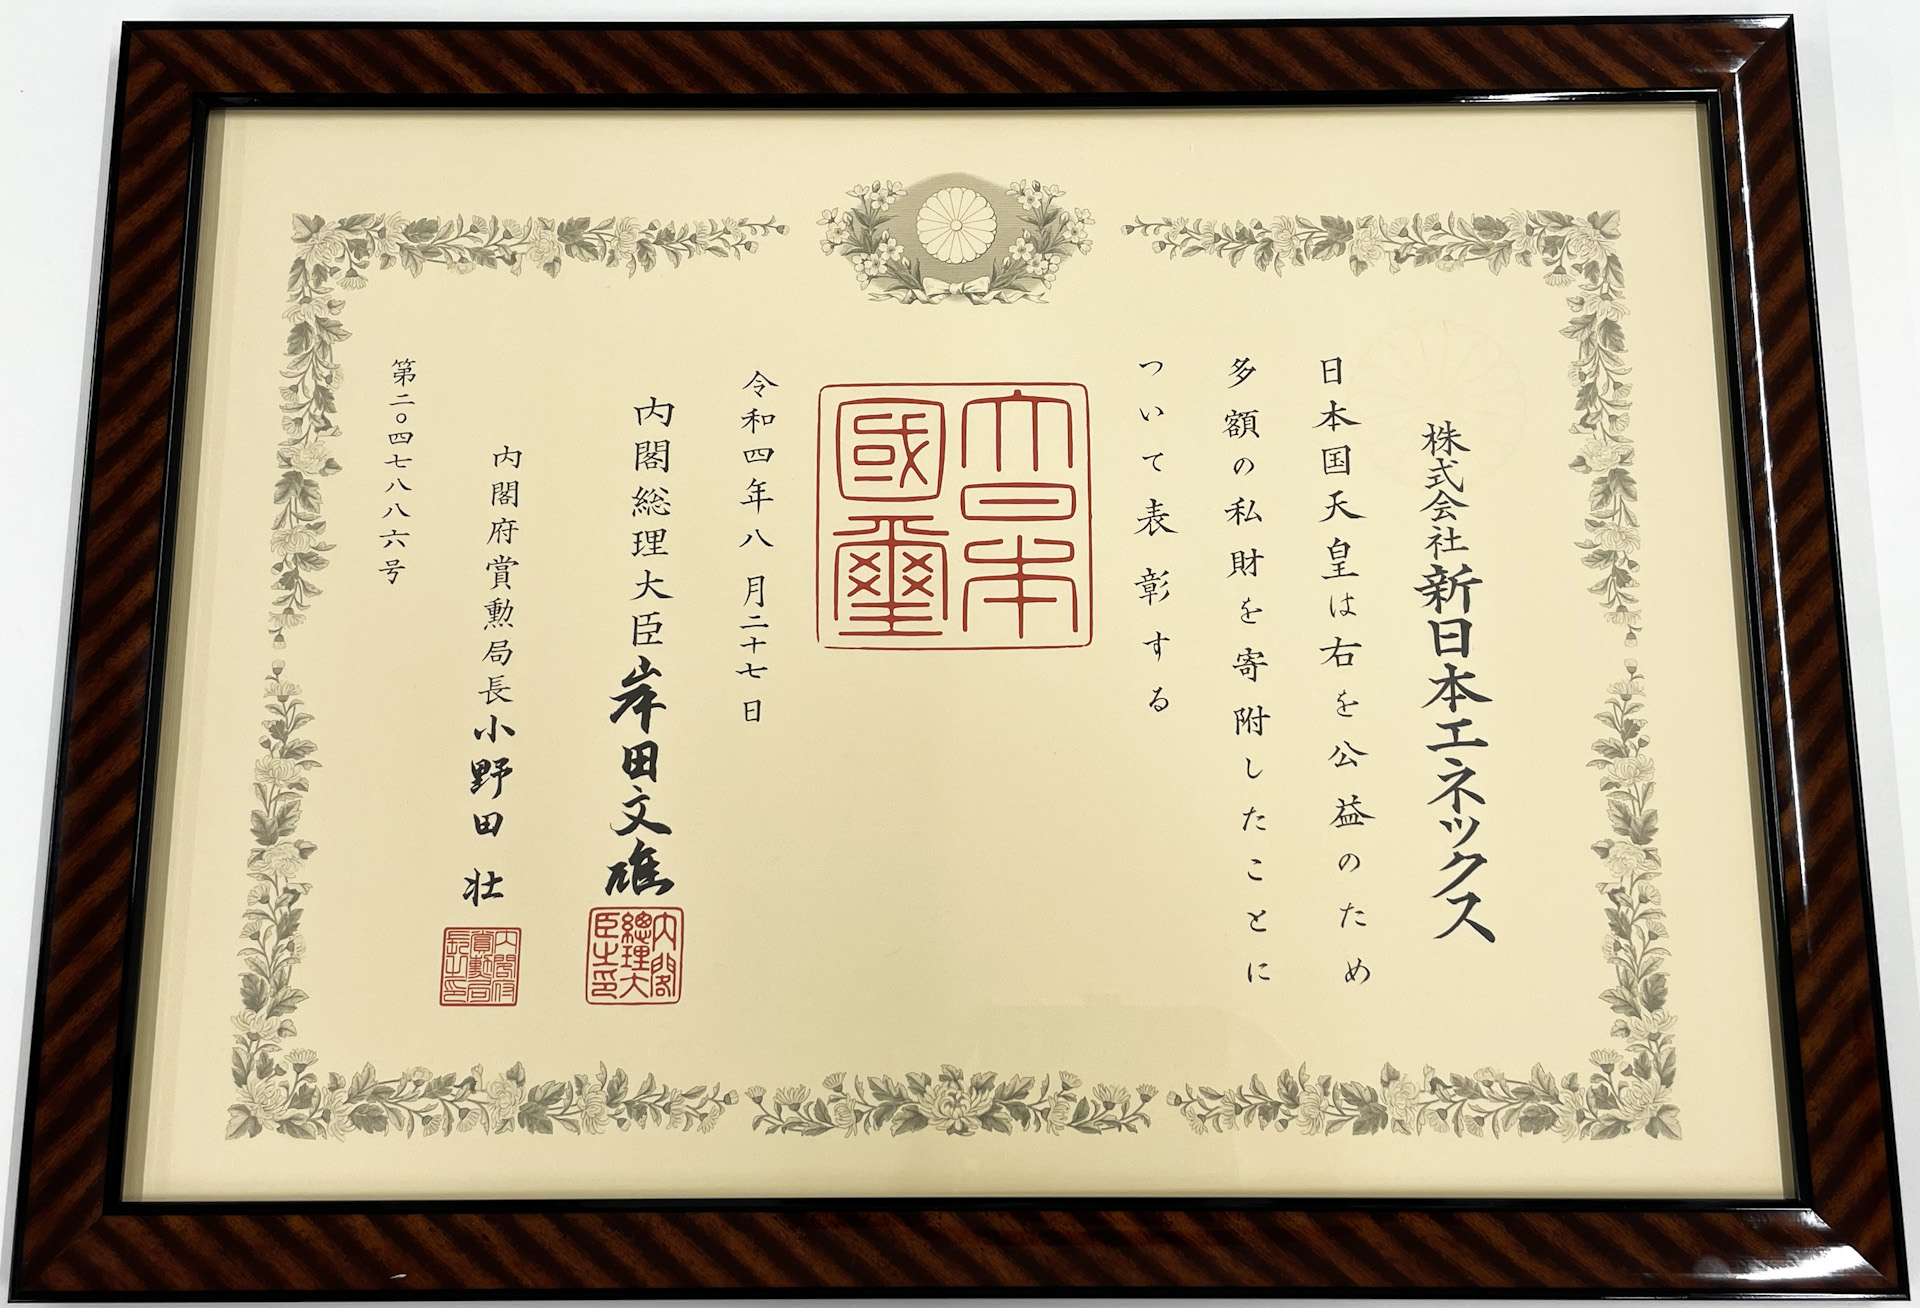 株式会社新日本エネックス
日本国天皇は右を公益のため
多額の私財を寄附したことに
ついて表彰する
大日本
國璽
令和四年八月二十七日
内閣総理大臣岸田文雄
内閣
總理大
臣之印
内閣府賞勲局長小野田壮
内閣府
賞勳局
長之印
第二〇四七八八六号